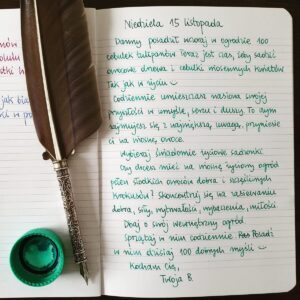 Niedziela 15 listopada
Danny posadził wczoraj w ogrodzie 100
cebulek tulipanów. Teraz jest czas, żeby sadzić
owocowe drzewa i cebulki wiosennych kwiatów
Tak jak w życiu
Codziennie umieszczasz nasiona swojej
przyszłości w umyśle, sercu i duszy. To czym
zajmujesz się z największą uwagą, przyniesie
ci na wiosnę owoce.
Wybieraj świadomie życiowe sadzonki.
Czy chcesz mieć na wiosnę żyzny ogród
pełen słodkich owoców dobra i szczęśliwych
krokusów? Skoncentruj się na zasiewaniu
dobra, siły, wytrwałości, wybaczenia, miłości
Dbaj o swój wewnętrzny ogród
Sprzątaj w nim codziennie Posadź
w nim dzisiaj 100 dobrych myśli
Kocham Cię,
Twoja B.
jak